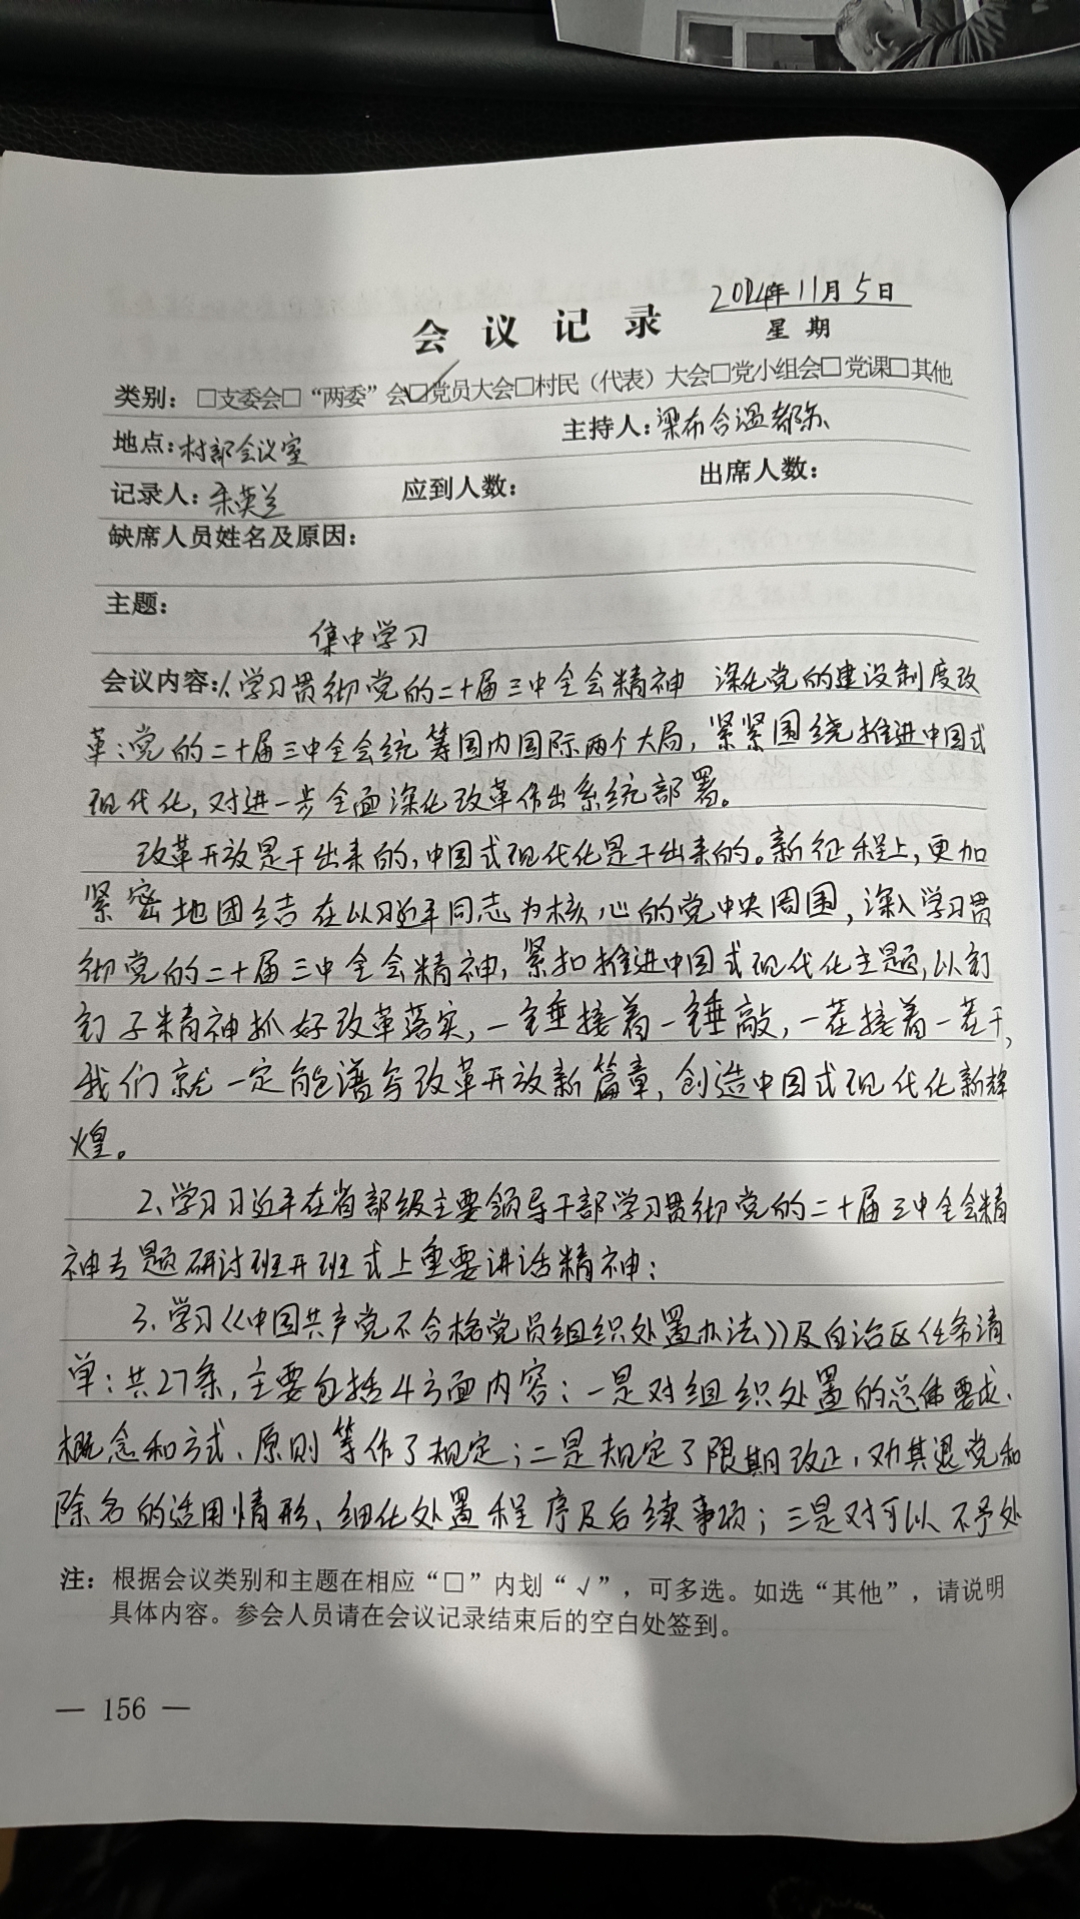 2024年11月5日
会议记录
星期
类别：□支委会□“两委”会☑党员大会□村民（代表）大会□党小组会□党课□其他
地点：村部会议室 主持人：梁布合温都尔
记录人：英兰 应到人数： 出席人数：
缺席人员姓名及原因：
主题：
集中学习
会议内容：1、学习贯彻党的二十届三中全会精神 深化党的建设制度改
革：党的二十届三中全会统筹国内国际两个大局，紧紧围绕推进中国式
现代化，对进一步全面深化改革作出系统部署。
改革开放是干出来的，中国式现代化是干出来的。新征程上，更加
紧密地团结在以习近平同志为核心的党中央周围，深入学习贯
彻党的二十届三中全会精神，紧扣推进中国式现代化主题，以钉
钉子精神抓好改革落实，一锤接着一锤敲，一茬接着一茬干，
我们就一定能谱写改革开放新篇章，创造中国式现代化新辉
煌。
2、学习习近平在省部级主要领导干部学习贯彻党的二十届三中全会精
神专题研讨班开班式上重要讲话精神；
3、学习《中国共产党不合格党员组织处置办法》及自治区任务清
单：共27条，主要包括4方面内容：一是对组织处置的总体要求、
概念和方式、原则等作了规定；二是规定了限期改正、劝其退党和
除名的适用情形、细化处置程序及后续事项；三是对可以不予处
注：根据会议类别和主题在相应“□”内划“√”，可多选。如选“其他”，请说明
具体内容。参会人员请在会议记录结束后的空白处签到。
— 156 —